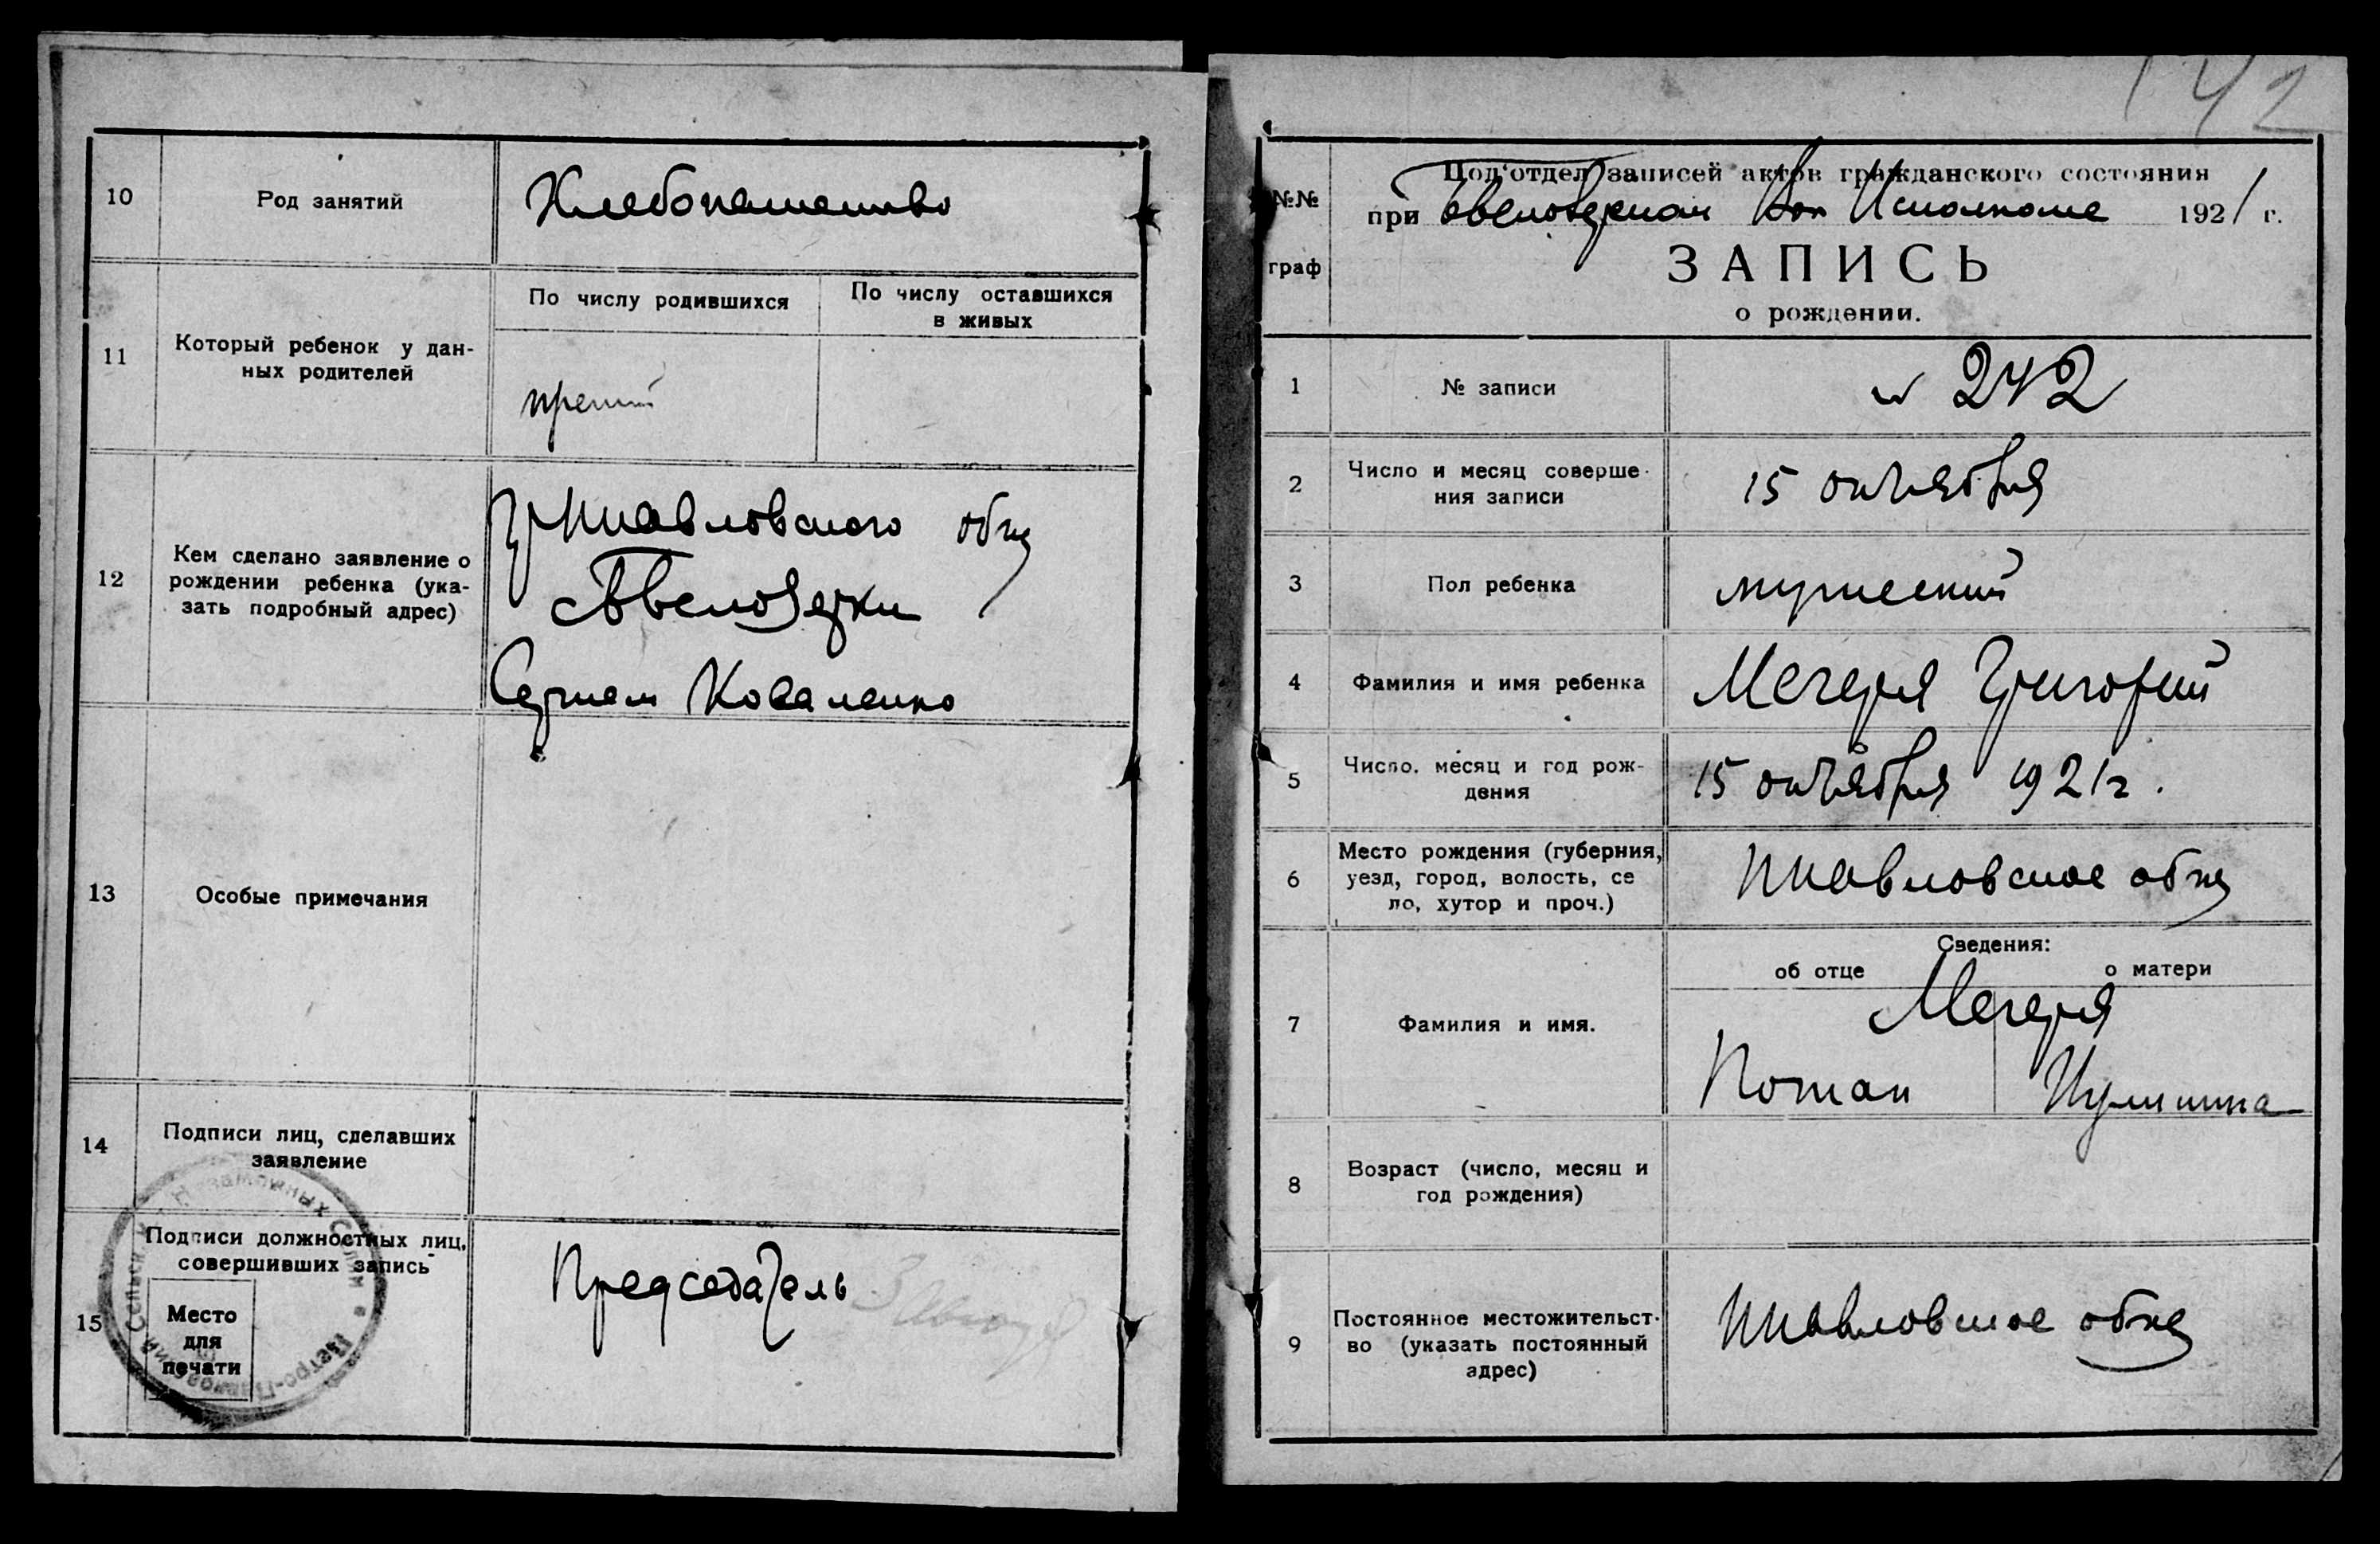 10
Род занятий
Хлебопашество
11
Который ребенок у дан-
ных родителей
По числу родившихся
По числу оставшихся
в живых
третий
12
Кем сделано заявление о
рождении ребенка (ука-
зать подробный адрес)
гр Ппавловского общ
Сергием Коваленко
13
Особые примечания
14
Подписи лиц, сделавших
заявление
15
Подписи должностных лиц,
совершивших запись
Место
для
печати
Председатель
Незаможных Селян
Петро-Павловский
142
№№
граф
Под'отдел записей актов гражданского состояния
при Вол Исполкоме 1921 г.
ЗАПИСЬ
о рождении.
1
№ записи
№ 242
2
Число и месяц соверше-
ния записи
15 октября
3
Пол ребенка
мужеский
4
Фамилия и имя ребенка
Мечеря Григорий
5
Число, месяц и год рож-
дения
15 октября 1921г.
6
Место рождения (губерния,
уезд, город, волость, се
ло, хутор и проч.)
Ппавловское общ
7
Фамилия и имя.
Сведения:
об отце
о матери
Мечеря
Потап
8
Возраст (число, месяц и
год рождения)
9
Постоянное местожительст-
во (указать постоянный
адрес)
Ппавловское общ